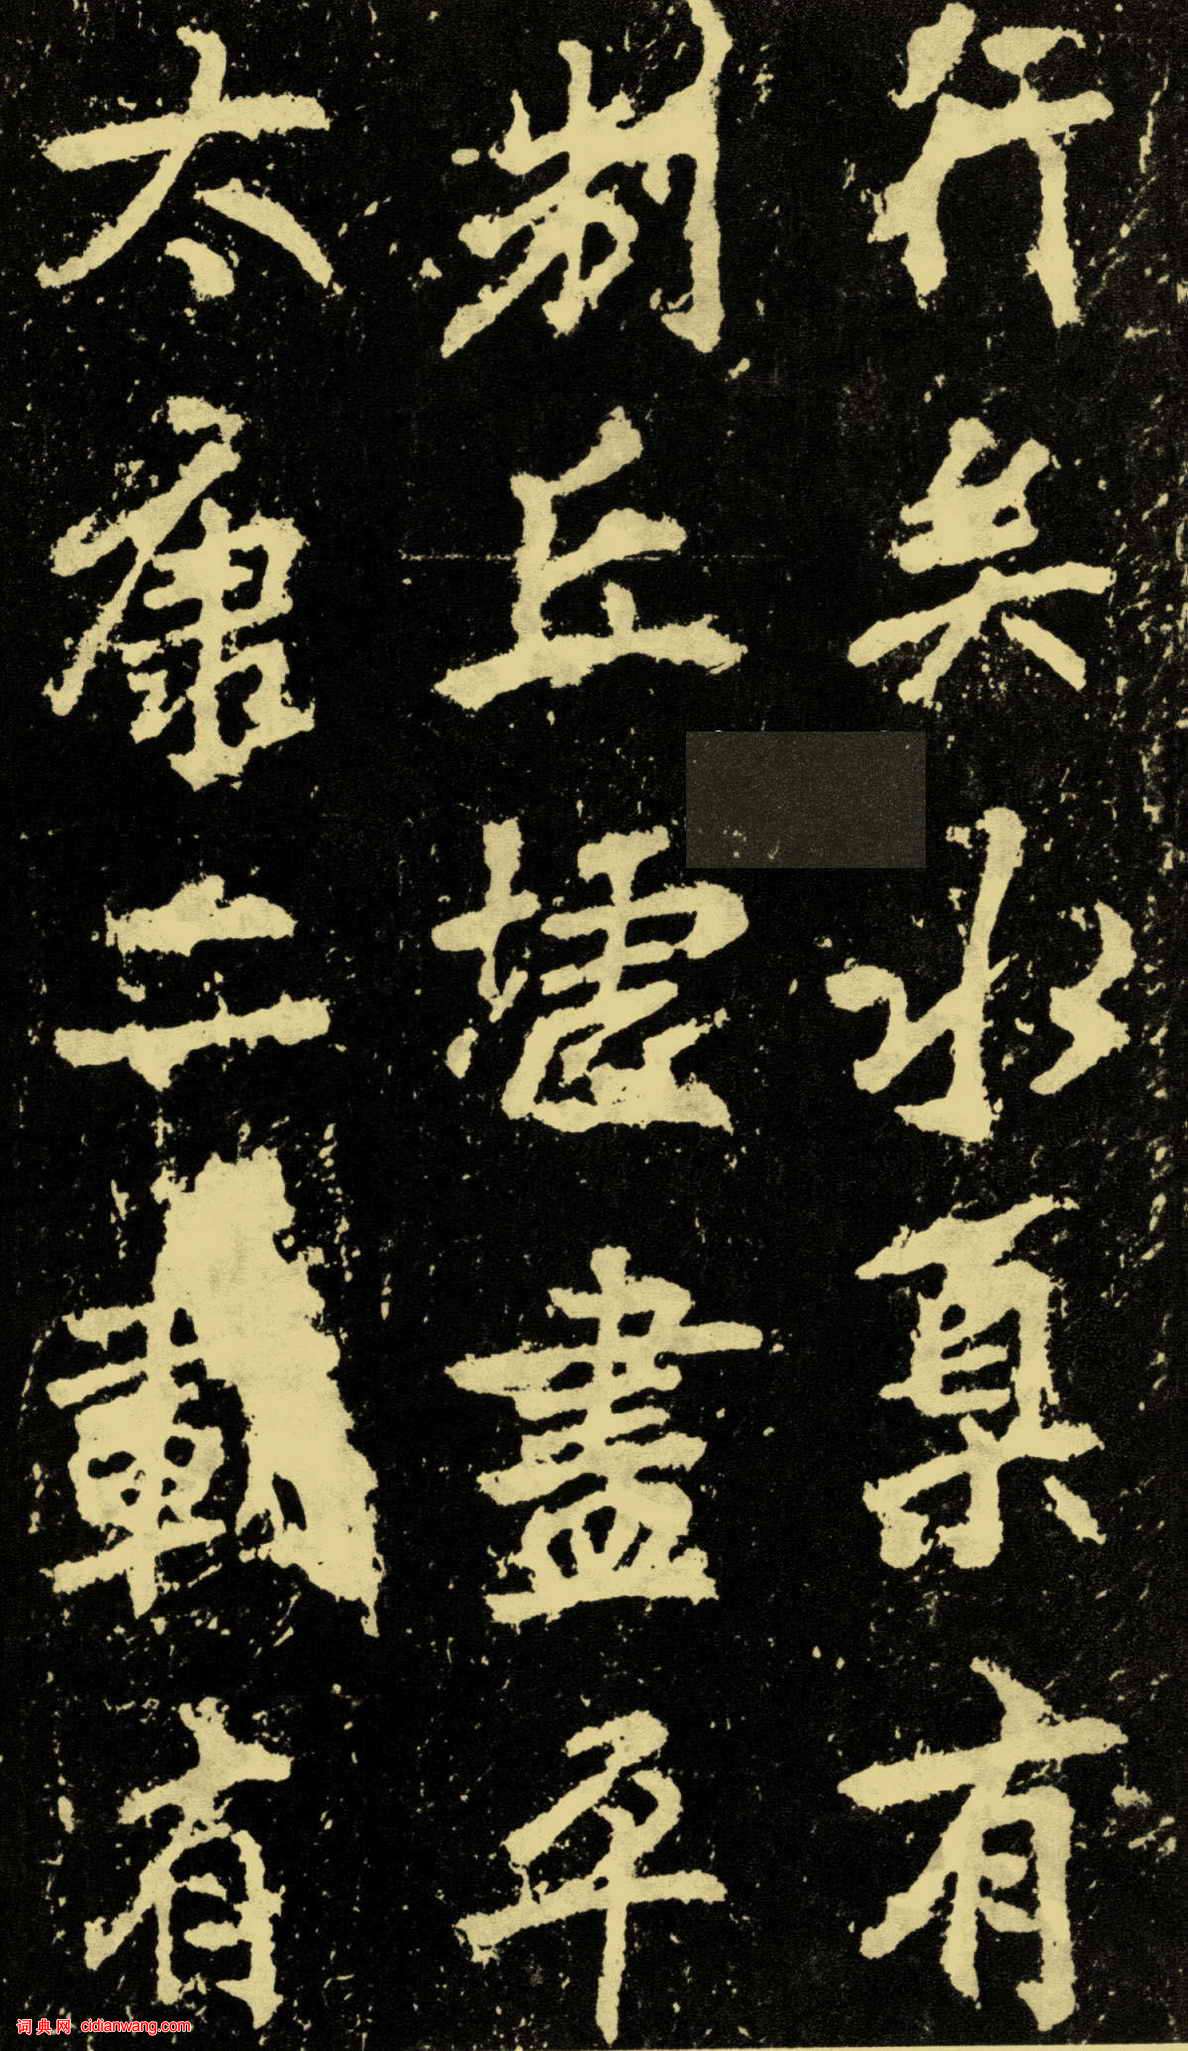 行矣水臬有
制丘墟盡平
太康二載有
词典网 cidianwang.com